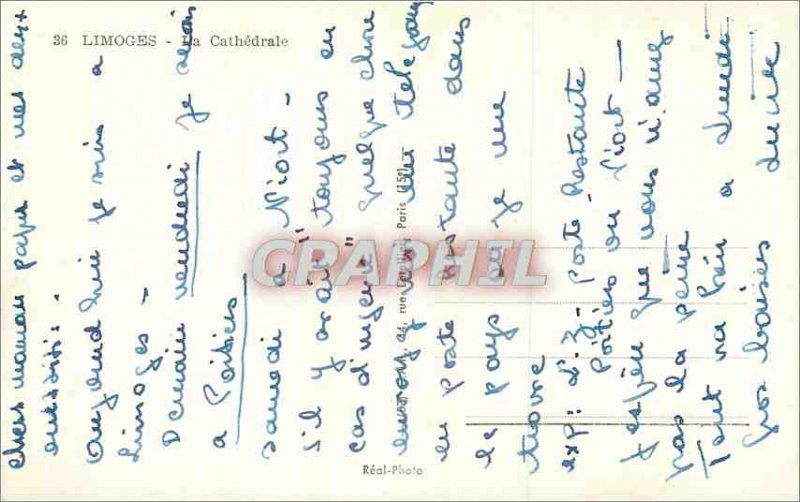 36 LIMOGES - La Cathédrale
chers maman papa et mes deux
Aujourd'hui je suis a
Limoges -
Demain vendredi je serai
a Poitiers
samedi a Niort -
s'il y avait toujours en
cas d'urgence" quelque chose
envoyez
en poste restante dans
le pays ou je me
trouve
exp: L.J. Poste Restante
Poitiers ou Niort -
J espère que vous n'avez
pas la peine
Tout va bien a Lundi
gros baisers
Réal-Photo
rue Paris (15e)
CPAPHIL